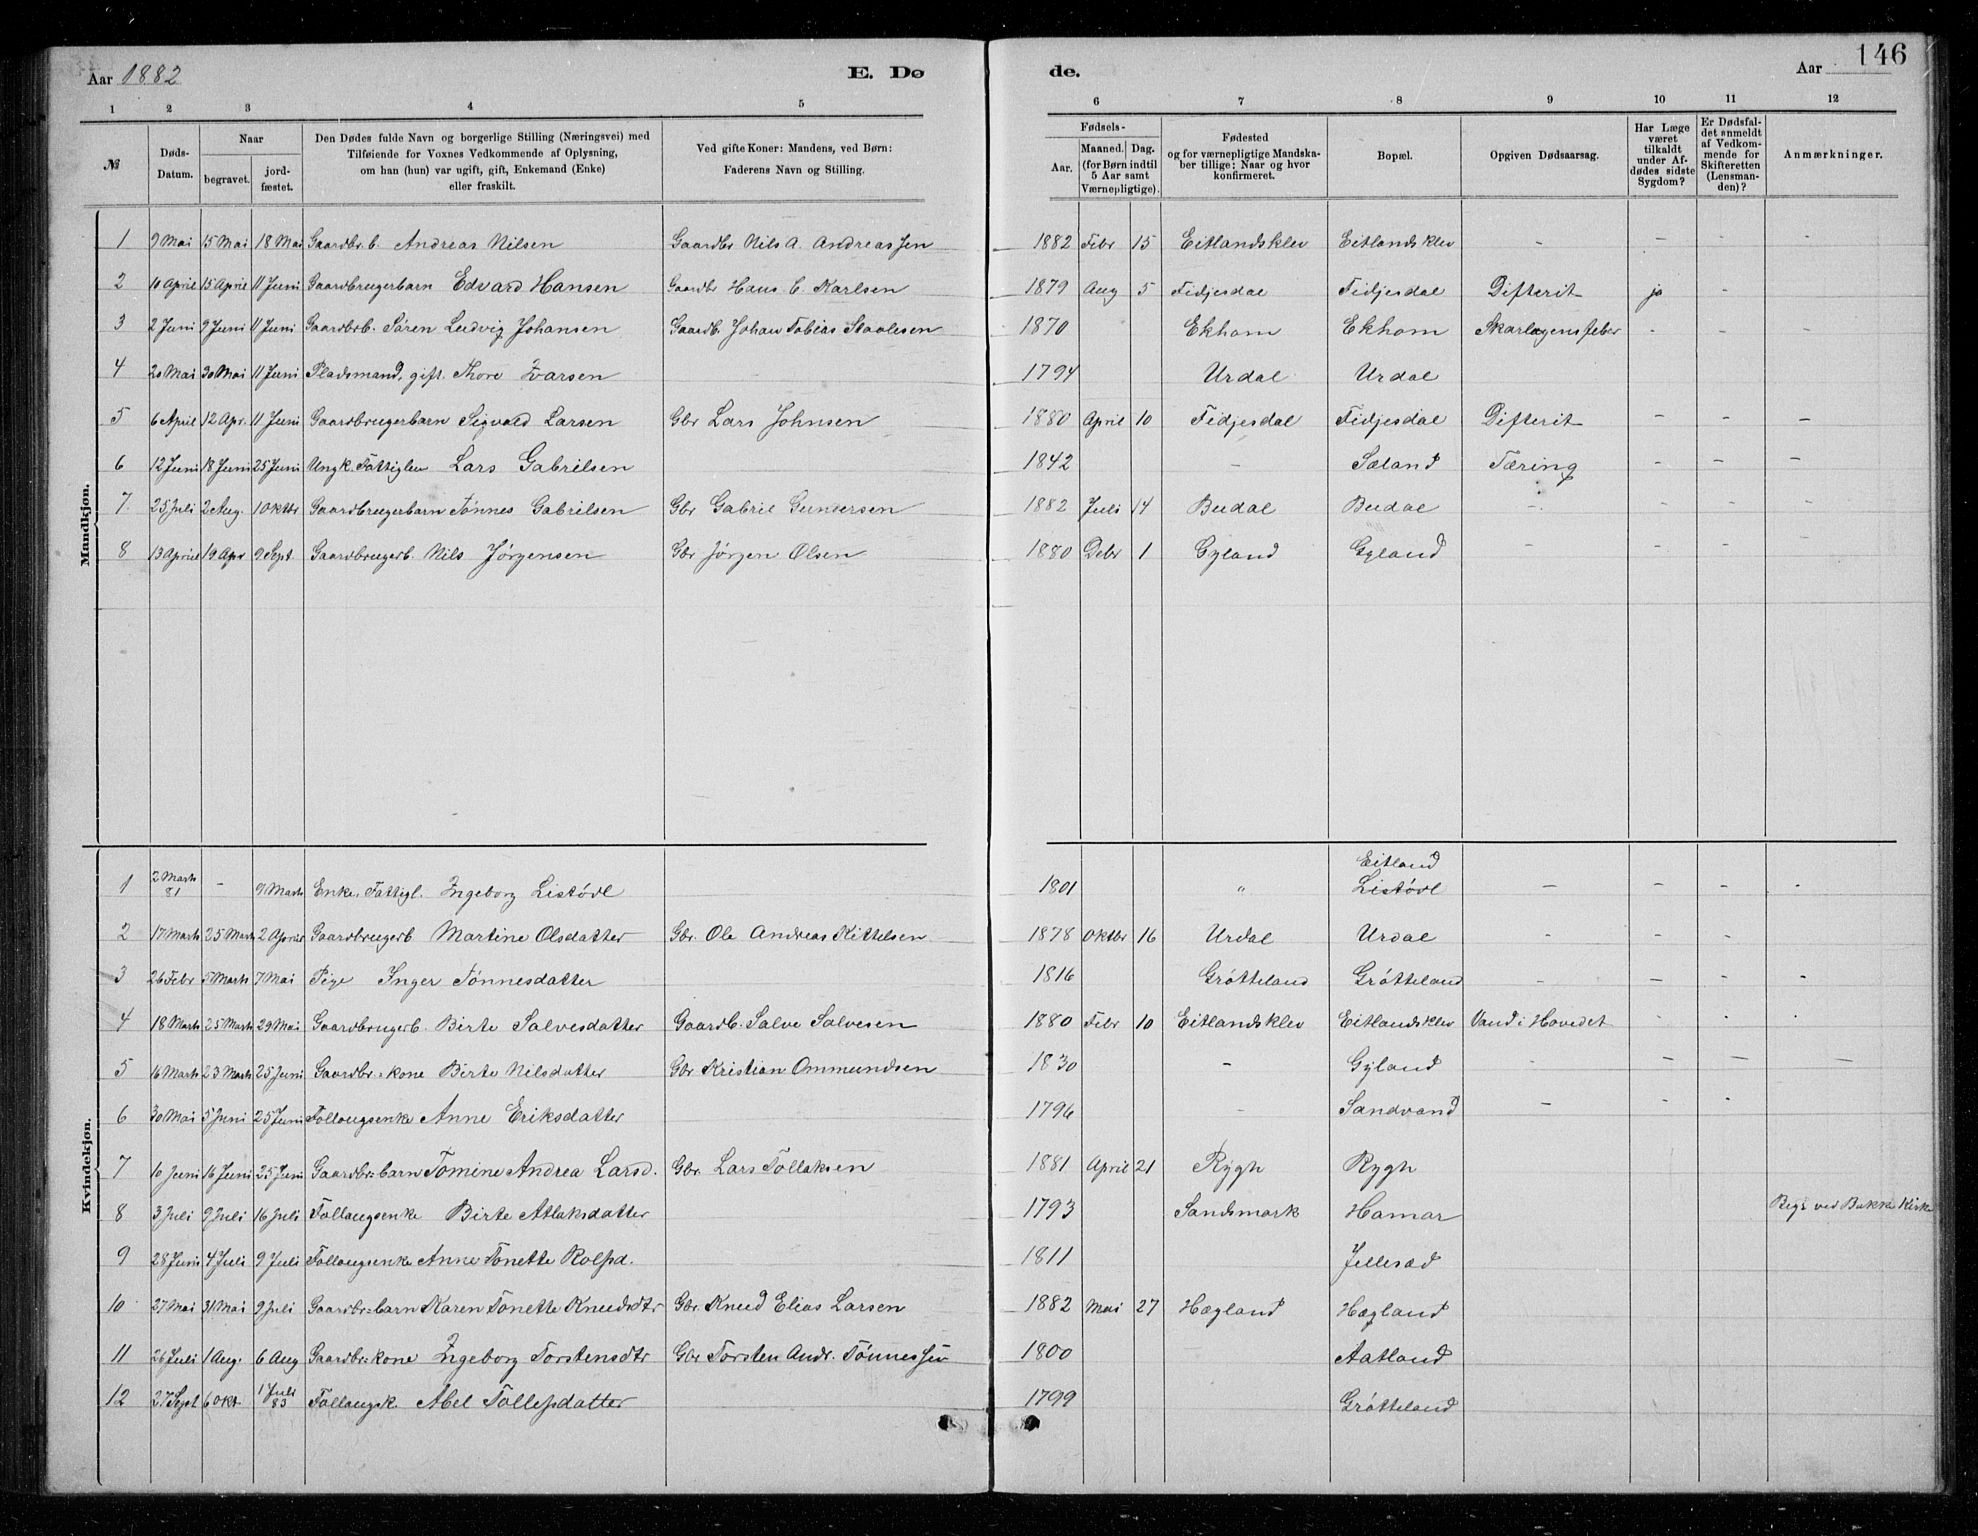 Aar 1882 E. Dø de. Aar 146
1 2 3 4 5 6 7 8 9 10 11 12
№
Døds-
Datum.
Naar
begravet.
jord-
fæstet.
Den Dødes fulde Navn og borgerlige Stilling (Næringsvei) med
Tilføiende for Voxnes Vedkommende af Oplysning,
om han (hun) var ugift, gift, Enkemand (Enke)
eller fraskilt.
Ved gifte Koner: Mandens, ved Børn:
Faderens Navn og Stilling.
Fødsels-
Aar.
Maaned. Dag.
(for Børn indtil
5 Aar samt
Værnepligtige).
Fødested
og for værnepligtige Mandska-
ber tillige: Naar og hvor
konfirmeret.
Bopæl.
Opgiven Dødsaarsag.
Har Læge
været
tilkaldt
under Af-
dødes sidste
Sygdom?
Er Dødsfal-
det anmeldt
af Vedkom-
mende for
Skifteretten
(Lensman-
den)?
Anmærkninger.
Mandkjøn.
1 9 Mai 15 Mai 18 Mai Gaardbr. b. Andreas Nilsen Gaardbr Nils A. Andreassen 1882 Febr 15 Eitlandsklev Eitlandsklev - - - -
2 10 April 15 April 11 Juni Gaardbrugerbarn Edvard Hansen Gaardbr Hans C. Karlsen 1879 Aug 5 Fidjesdal Fidjesdal Difterit ja -
3 2 Juni 9 Juni 11 Juni Gaardbrb. Søren Ludvig Johansen Gaardb. Johan Tobias Staalesen 1870 Ekhom Ekhom Skarlagensfeber - - -
4 20 Mai 30 Mai 11 Juni Pladsmand, gift. Thore Ivarsen 1794 Urdal Urdal
5 6 April 12 Apr. 11 Juni Gaardbrugerbarn Sigvald Larsen Gbr Lars Johnsen 1880 April 10 Fidjesdal Fidjesdal Difterit - - -
6 12 Juni 18 Juni 25 Juni Ungk. Fattiglem Lars Gabrilsen 1842 - Sæland Tæring - - -
7 25 Juli 2 Aug. 1 Oktbr Gaardbrugerbarn Tønnes Gabrilsen Gbr Gabriel Gundersen 1882 Juli 14 Budal Budal - - - -
8 13 April 19 Apr 9 Sept. Gaardbrugerb. Nils Jørgensen Gbr Jørgen Olsen 1880 Debr 1 Gyland Gyland - - - -
Kvindekjøn.
Eitland
1 2 Marts 81 - 9 Marts Enke, Fattigl. Ingeborg Listøvl 1801 " Listøvl - - - -
2 17 Marts 25 Marts 2 April Gaardbrugerb Martine Olsdatter Gbr. Ole Andreas Kittelsen 1878 Oktbr 16 Urdal Urdal - - - -
3 26 Febr 5 Marts 7 Mai Pige Inger Tønnesdatter 1816 Grøtteland Grøtteland - - - -
4 18 Marts 25 Marts 29 Mai Gaardbrugerb. Birte Salvesdatter Gaardb. Salve Salvesen 1880 Febr 10 Eitlandsklev Eitlandsklev Vand i Hovedet - - -
5 16 Marts 23 Marts 25 Juni Gaardbr.=kone Birte Nilsdatter Gbr Kristian Ommundsen 1830 - Gyland - - - -
6 30 Mai 5 Juni 25 Juni Follaugsenke Anne Eriksdatter 1796 - Sandvand - - -
7 10 Juni 16 Juni 25 Juni Gaardbr=barn Tomine Andrea Larsd. Gbr. Lars Tollaksen 1881 April 21 Rygh Rygh
8 3 Juli 9 Juli 16 Juli Follaugsenke Birte Atlaksdatter 1793 Sandsmark Hamar Begr ved Bakke Kirke
9 28 Juni 4 Juli 9 Juli Follaugsenke Anne Tonette Rolfsd. 1811 Jellesad
10 27 Mai 31 Mai 9 Juli Gaardbr=barn Karen Tonette Knudsdtr Gbr. Knud Elias Larsen 1882 Mai 27 Hægland Hægland
11 26 Juli 1 Aug. 6 Aug Gaardbr=kone Ingeborg Torstensdtr Gbr Torsten Andr. Tønnessen 1800 Aatland
12 27 Sept 6 Okt. 1 Juli 83 Follaugsk. Abel Tollefsdatter 1799 Grøtteland